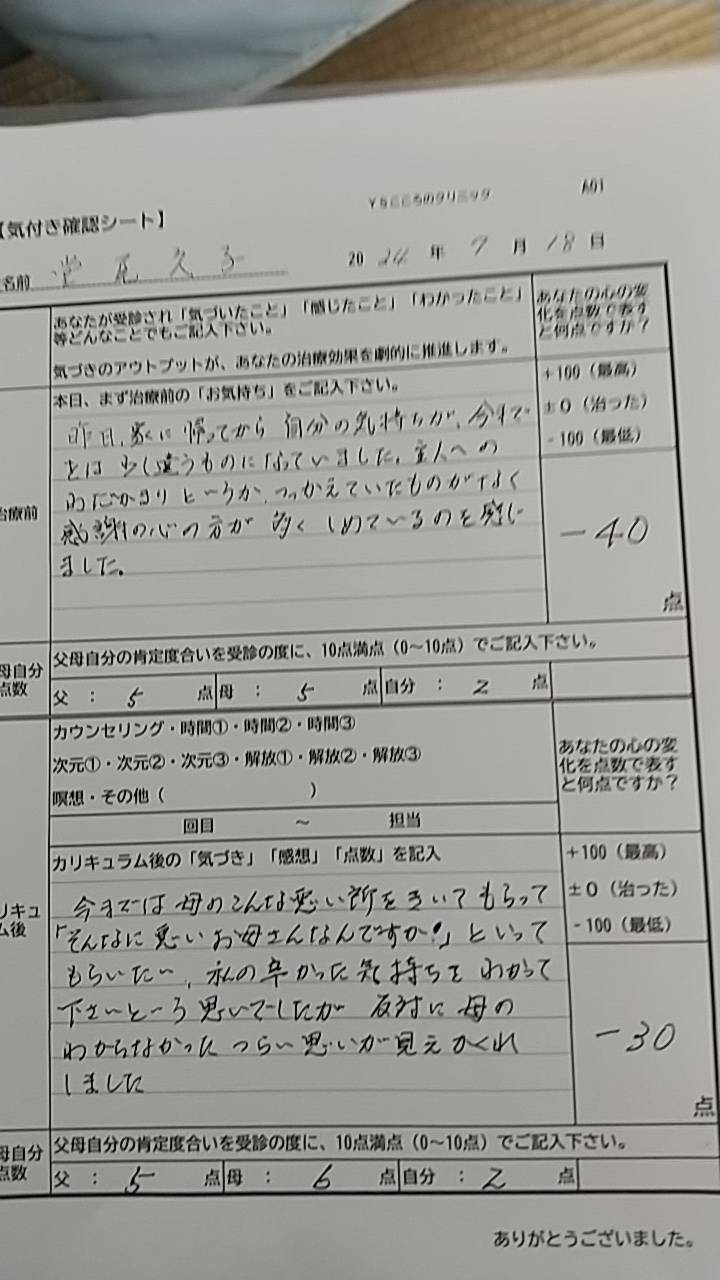 YSこころのクリニック A01
【気付き確認シート】
名前 堂尾久子 2024年9月18日
あなたが受診され「気づいたこと」「感じたこと」「わかったこと」
等どんなことでもご記入下さい。
気づきのアウトプットが、あなたの治療効果を劇的に推進します。
あなたの心の変
化を点数で表す
と何点ですか？
治療前
本日、まず治療前の「お気持ち」をご記入下さい。
昨日、家に帰ってから自分の気持ちが、今まで
とは少し違うものになっていました。主人への
わだかまりというか、つっかえていたものがなく
感謝の心の方が多くしめているのを感じ
ました。
+100（最高）
±0（治った）
-100（最低）
-40
点
母自分
点数
父母自分の肯定度合いを受診の度に、10点満点（0～10点）でご記入下さい。
父：5点 母：5点 自分：2点
カウンセリング・時間①・時間②・時間③
次元①・次元②・次元③・解放①・解放②・解放③
瞑想・その他（ ）
回目 ～ 担当
あなたの心の変
化を点数で表す
と何点ですか？
リキュ
ム後
カリキュラム後の「気づき」「感想」「点数」を記入
今までは母のこんな悪い所をきいてもらって
「そんなに悪いお母さんなんですか！」といって
もらいたい、私の辛かった気持ちをわかって
下さいという思いでしたが 反対に母の
わからなかったつらい思いが見えかくれ
しました
+100（最高）
±0（治った）
-100（最低）
-30
点
母自分
点数
父母自分の肯定度合いを受診の度に、10点満点（0～10点）でご記入下さい。
父：5点 母：6点 自分：2点
ありがとうございました。